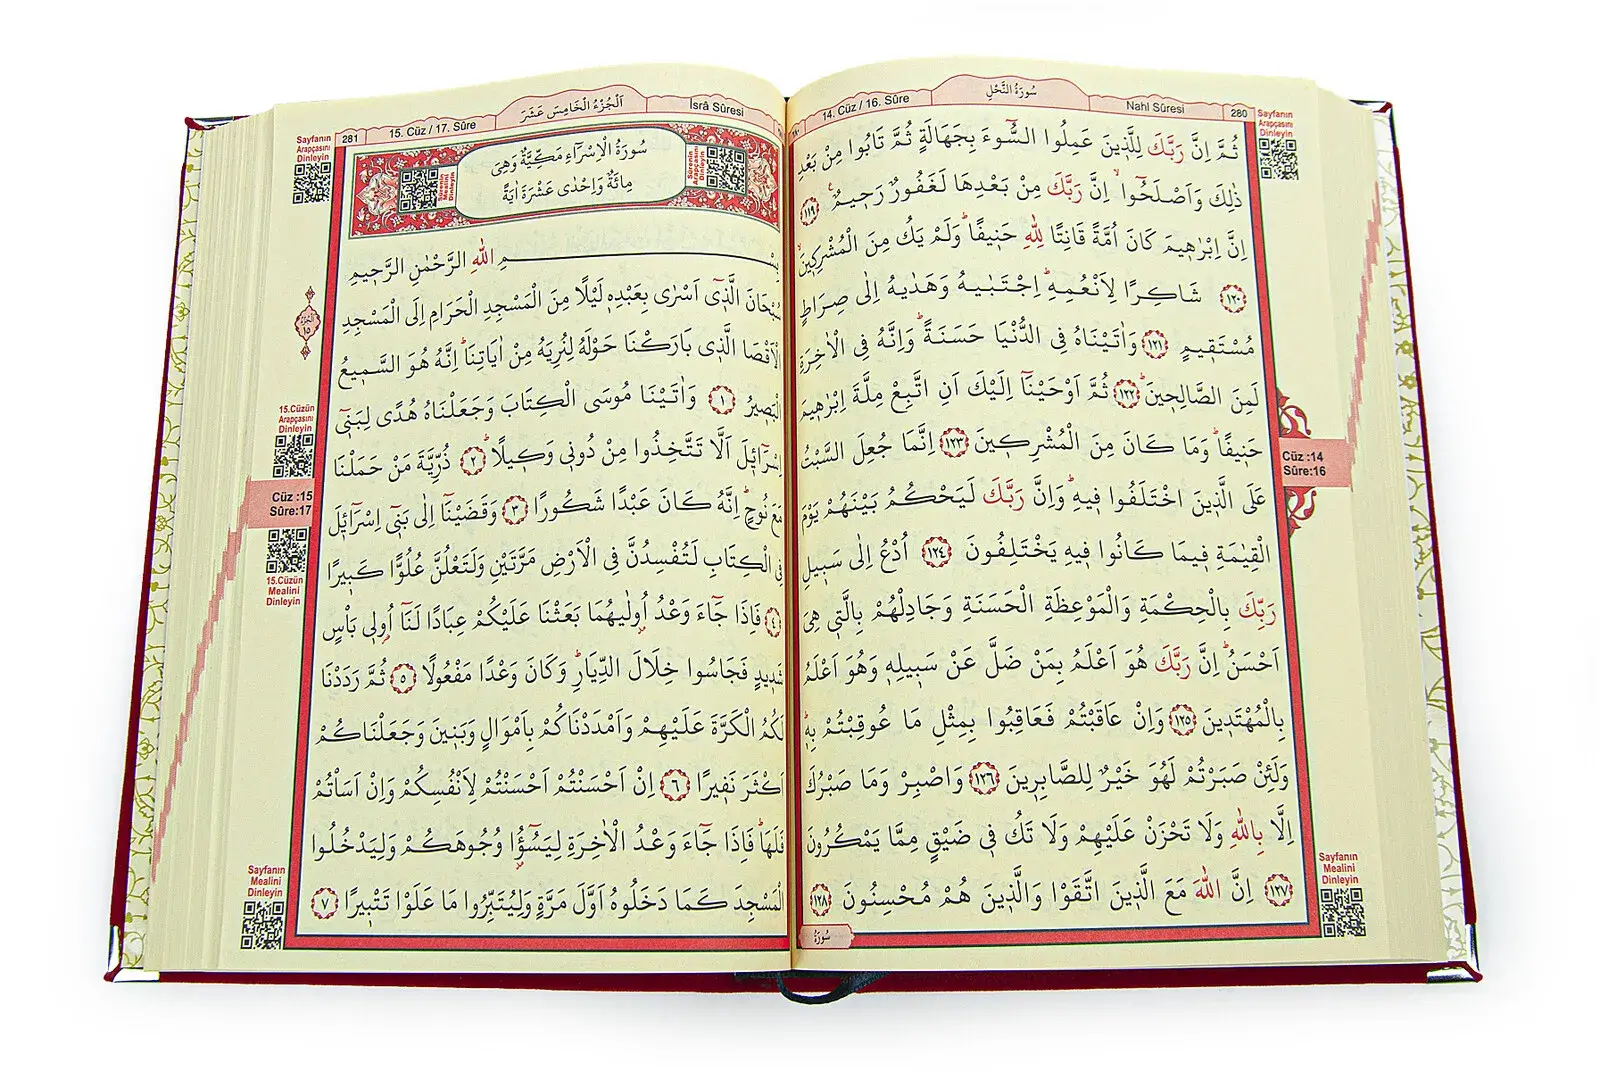 Nahl Sûresi
سُورَةُ النَّحْلِ
14. Cüz / 16. Sûre
280
Sayfanın
Arapçasını
Dinleyin
ثُمَّ اِنَّ رَبَّكَ لِلَّذ۪ينَ عَمِلُوا السُّٓوءَ بِجَهَالَةٍ ثُمَّ تَابُوا مِنْ بَعْدِ
ذٰلِكَ وَاَصْلَحُٓوا اِنَّ رَبَّكَ مِنْ بَعْدِهَا لَغَفُورٌ رَح۪يمٌ ۟ ﴿١١٩﴾
اِنَّ اِبْرٰه۪يمَ كَانَ اُمَّةً قَانِتًا لِلّٰهِ حَن۪يفًاۜ وَلَمْ يَكُ مِنَ الْمُشْرِك۪ينَۙ
﴿١٢٠﴾ شَاكِرًا لِاَنْعُمِه۪ۜ اِجْتَبٰيهُ وَهَدٰيهُ اِلٰى صِرَاطٍ
مُسْتَق۪يمٍ ﴿١٢١﴾ وَاٰتَيْنَاهُ فِي الدُّنْيَا حَسَنَةًۜ وَاِنَّهُ فِي الْاٰخِرَةِ
لَمِنَ الصَّالِح۪ينَۜ ﴿١٢٢﴾ ثُمَّ اَوْحَيْنَٓا اِلَيْكَ اَنِ اتَّبِعْ مِلَّةَ اِبْرٰه۪يمَ
حَن۪يفًاۜ وَمَا كَانَ مِنَ الْمُشْرِك۪ينَ ﴿١٢٣﴾ اِنَّمَا جُعِلَ السَّبْتُ
عَلَى الَّذ۪ينَ اخْتَلَفُوا ف۪يهِۜ وَاِنَّ رَبَّكَ لَيَحْكُمُ بَيْنَهُمْ يَوْمَ
الْقِيٰمَةِ ف۪يمَا كَانُوا ف۪يهِ يَخْتَلِفُونَ ﴿١٢٤﴾ اُدْعُ اِلٰى سَب۪يلِ
رَبِّكَ بِالْحِكْمَةِ وَالْمَوْعِظَةِ الْحَسَنَةِ وَجَادِلْهُمْ بِالَّت۪ي هِيَ
اَحْسَنُۜ اِنَّ رَبَّكَ هُوَ اَعْلَمُ بِمَنْ ضَلَّ عَنْ سَب۪يلِه۪ وَهُوَ اَعْلَمُ
بِالْمُهْتَد۪ينَ ﴿١٢٥﴾ وَاِنْ عَاقَبْتُمْ فَعَاقِبُوا بِمِثْلِ مَا عُوقِبْتُمْ بِه۪ۜ
وَلَئِنْ صَبَرْتُمْ لَهُوَ خَيْرٌ لِلصَّابِر۪ينَ ﴿١٢٦﴾ وَاصْبِرْ وَمَا صَبْرُكَ
اِلَّا بِاللّٰهِ وَلَا تَحْزَنْ عَلَيْهِمْ وَلَا تَكُ ف۪ي ضَيْقٍ مِمَّا يَمْكُرُونَ
﴿١٢٧﴾ اِنَّ اللّٰهَ مَعَ الَّذ۪ينَ اتَّقَوْا وَالَّذ۪ينَ هُمْ مُحْسِنُونَ ﴿١٢٨﴾
سُورَةُ
Cüz :14
Sûre:16
Sayfanın
Mealini
Dinleyin
281
15. Cüz / 17. Sûre
اَلْجُزْءُ الْخَامِسَ عَشَرَ
İsrâ Sûresi
Sayfanın
Arapçasını
Dinleyin
Sûrenin
Arapçasını
Dinleyin
سُورَةُ الْاِسْرَٓاءِ مَكِّيَّةٌ وَهِيَ
مِائَةٌ وَاِحْدٰى عَشْرَةَ اٰيَةً
Mealini
Dinleyin
بِسْمِ اللّٰهِ الرَّحْمٰنِ الرَّح۪يمِ
سُبْحَانَ الَّذ۪ٓي اَسْرٰى بِعَبْدِه۪ لَيْلًا مِنَ الْمَسْجِدِ الْحَرَامِ اِلَى الْمَسْجِدِ
الْاَقْصَا الَّذ۪ي بَارَكْنَا حَوْلَهُ لِنُرِيَهُ مِنْ اٰيَاتِنَاۜ اِنَّهُ هُوَ السَّم۪يعُ
الْبَص۪يرُ ﴿١﴾ وَاٰتَيْنَا مُوسَى الْكِتَابَ وَجَعَلْنَاهُ هُدًى لِبَن۪ٓي
اِسْرَٓائ۪لَ اَلَّا تَتَّخِذُوا مِنْ دُون۪ي وَك۪يلًاۜ ﴿٢﴾ ذُرِّيَّةَ مَنْ حَمَلْنَا
مَعَ نُوحٍۜ اِنَّهُ كَانَ عَبْدًا شَكُورًا ﴿٣﴾ وَقَضَيْنَٓا اِلٰى بَن۪ٓي اِسْرَٓائ۪لَ
فِي الْكِتَابِ لَتُفْسِدُنَّ فِي الْاَرْضِ مَرَّتَيْنِ وَلَتَعْلُنَّ عُلُوًّا كَب۪يرًا
﴿٤﴾ فَاِذَا جَٓاءَ وَعْدُ اُو۫لٰيهُمَا بَعَثْنَا عَلَيْكُمْ عِبَادًا لَنَٓا اُو۬ل۪ي بَأْسٍ
شَد۪يدٍ فَجَاسُوا خِلَالَ الدِّيَارِۜ وَكَانَ وَعْدًا مَفْعُولًا ﴿٥﴾ ثُمَّ رَدَدْنَا
لَكُمُ الْكَرَّةَ عَلَيْهِمْ وَاَمْدَدْنَاكُمْ بِاَمْوَالٍ وَبَن۪ينَ وَجَعَلْنَاكُمْ
اَكْثَرَ نَف۪يرًا ﴿٦﴾ اِنْ اَحْسَنْتُمْ اَحْسَنْتُمْ لِاَنْفُسِكُمْ وَاِنْ اَسَأْتُمْ
فَلَهَاۜ فَاِذَا جَٓاءَ وَعْدُ الْاٰخِرَةِ لِيَسُٓؤُ۫ا وُجُوهَكُمْ وَلِيَدْخُلُوا
الْمَسْجِدَ كَمَا دَخَلُوهُ اَوَّلَ مَرَّةٍ وَلِيُتَبِّرُوا مَا عَلَوْا تَتْب۪يرًا ﴿٧﴾
15.Cüzün
Arapçasını
Dinleyin
Cüz :15
Sûre:17
15.Cüzün
Mealini
Dinleyin
Sayfanın
Mealini
Dinleyin